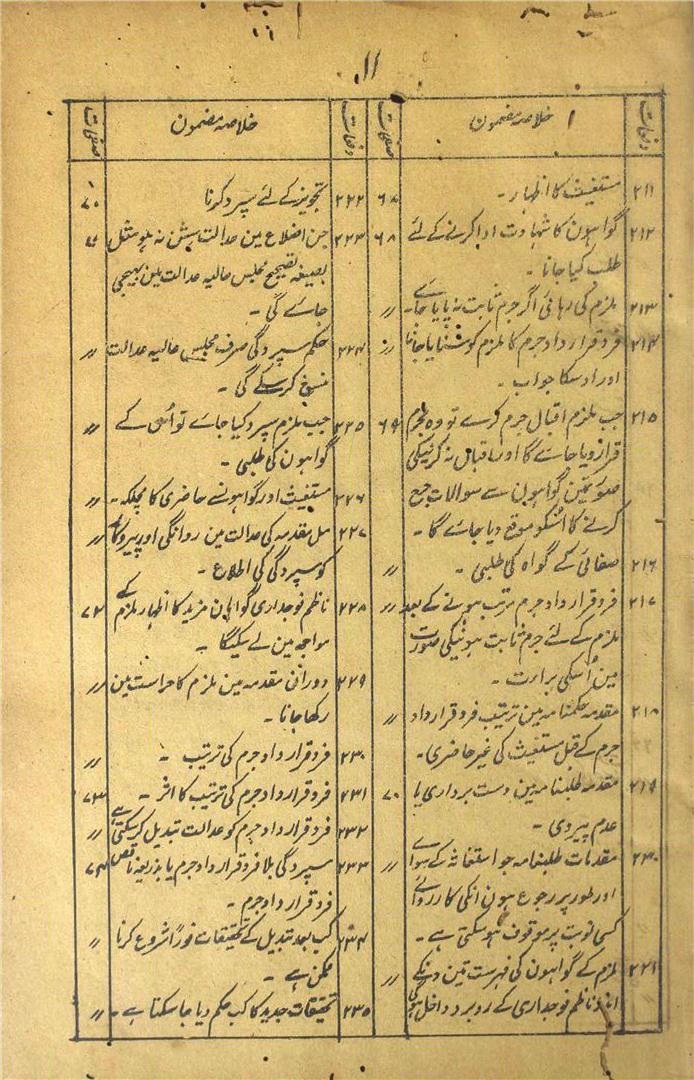 ۱۱
دفعات خلاصہ مضمون صفحات
۲۱۱ مستغیث کا اظہار ۔ ۶۸
۲۱۲ گواہون کا شہادت ادا کرنے کے لئے ۶۸
طلب کیا جانا ۔
۲۱۳ ملزم کی رہائی اگر جرم ثابت نہ پایا جاے ۔ 〃
۲۱۴ فرد قرار داد جرم کا ملزم کو سُنایا جانا 〃
اور اوسکا جواب ۔
۲۱۵ جب ملزم اقبال جرم کرے تو وہ مجرم ۶۹
قرار دیا جاے گا اور اقبال نہ کرنیکی
صورتمین گواہون سے سوالات جرح
کرنے کا اُسکو موقع دیا جاے گا ۔
۲۱۶ صفائی کے گواہ کی طلبی ۔ 〃
۲۱۷ فرد قرار داد جرم مرتب ہونے کے بعد 〃
ملزم کے لئے جرم ثابت ہونیکی صورت
مین اُسکی برارت ۔
۲۱۸ مقدمہ حکمنامہ مین ترتیب فرد قرار داد 〃
جرم کے قبل مستغیث کی غیر حاضری ۔
۲۱۹ مقدمہ طلبنامہ مین دست برداری یا ۷۰
عدم پیروی ۔
۲۲۰ مقدمات طلبنامہ جو استغاثہ کے سواے 〃
اور طور پر رجوع ہون انکی کارروائی
کسی نوبت پر موقوف ہوسکتی ہے ۔
۲۲۱ ملزم کے گواہون کی فہرست تین دنکے 〃
اندر ناظم فوجداری کے روبرو داخل ہوگی
دفعات خلاصہ مضمون صفحات
۲۲۲ تجویز کے لئے سپرد کرنا ۷۰
۲۲۳ جن اضلاع مین عدالت سشن نہ ہو مثل ۷۱
بصیغہ تصحیح مجلس عالیہ عدالت مین بھیجی
جاے گی ۔
۲۲۴ حکم سپردگی صرف مجلس عالیہ عدالت 〃
منسوخ کرسکے گی ۔
۲۲۵ جب ملزم سپرد کیا جاے تو اُسی کے 〃
گواہون کی طلبی ۔
۲۲۶ مستغیث اور گواہونسے حاضری کا مچلکہ ۔ 〃
۲۲۷ مسل مقدمہ کی عدالت مین روانگی اور پیروکار 〃
کو سپردگی کی اطلاع ۔
۲۲۸ ناظم فوجداری گواہان مزید کا اظہار ملزم کے ۷۲
مواجہ مین لے سکیگا ۔
۲۲۹ دوران مقدمہ مین ملزم کا حراست مین 〃
رکھا جانا ۔
۲۳۰ فرد قرار داد جرم کی ترتیب ۔ 〃
۲۳۱ فرد قرار داد جرم کی ترتیب کا اثر ۔ ۷۳
۲۳۲ فرد قرار داد جرم کو عدالت تبدیل کرسکتی ہے 〃
۲۳۳ سپردگی بلا فرد قرار داد جرم یا بذریعہ ناقص ۷۴
فرد قرار داد جرم ۔
۲۳۴ کب بعد تبدیل کے تحقیقات فوراً شروع کرنا 〃
ممکن ہے ۔
۲۳۵ تحقیقات جدید کا کب حکم دیا جاسکتا ہے ۔ 〃